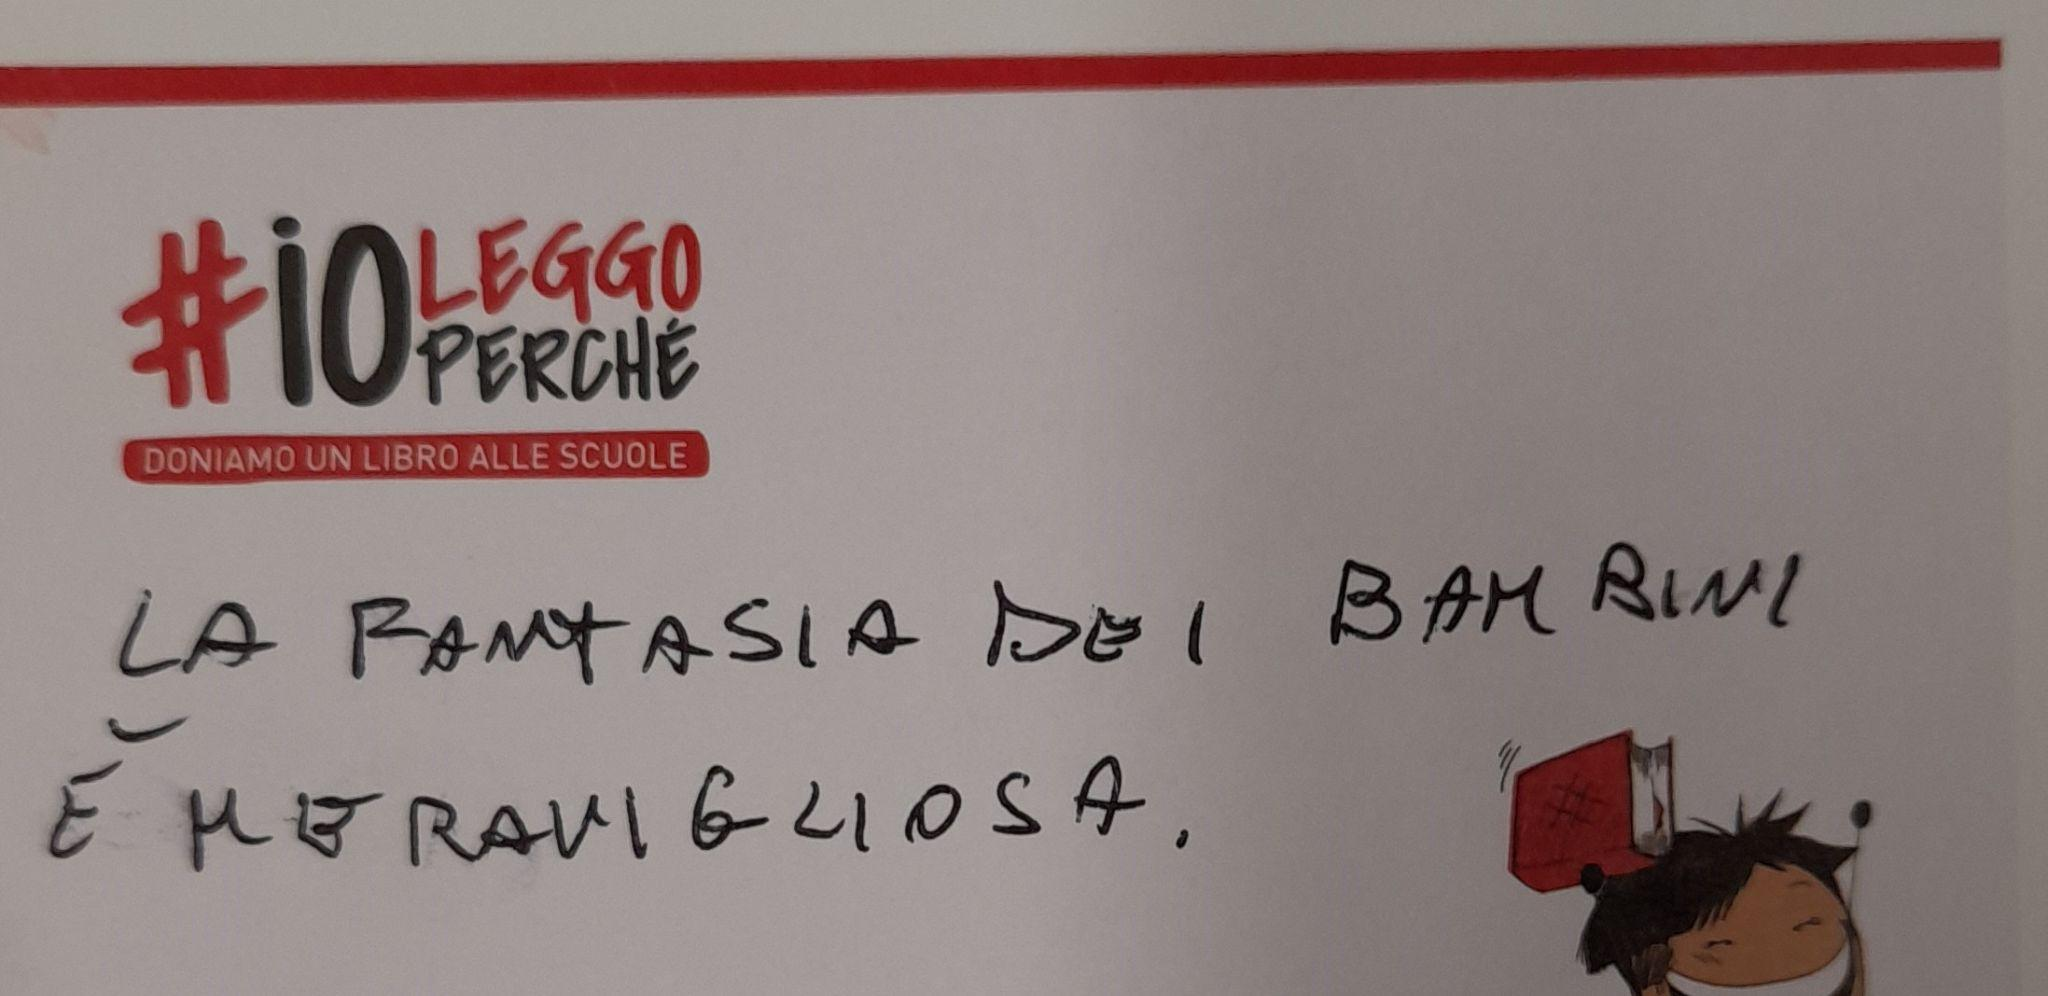 #iO LEGGO
PERCHÉ
DONIAMO UN LIBRO ALLE SCUOLE
LA FANTASIA DEI BAMBINI
È MERAVIGLIOSA.